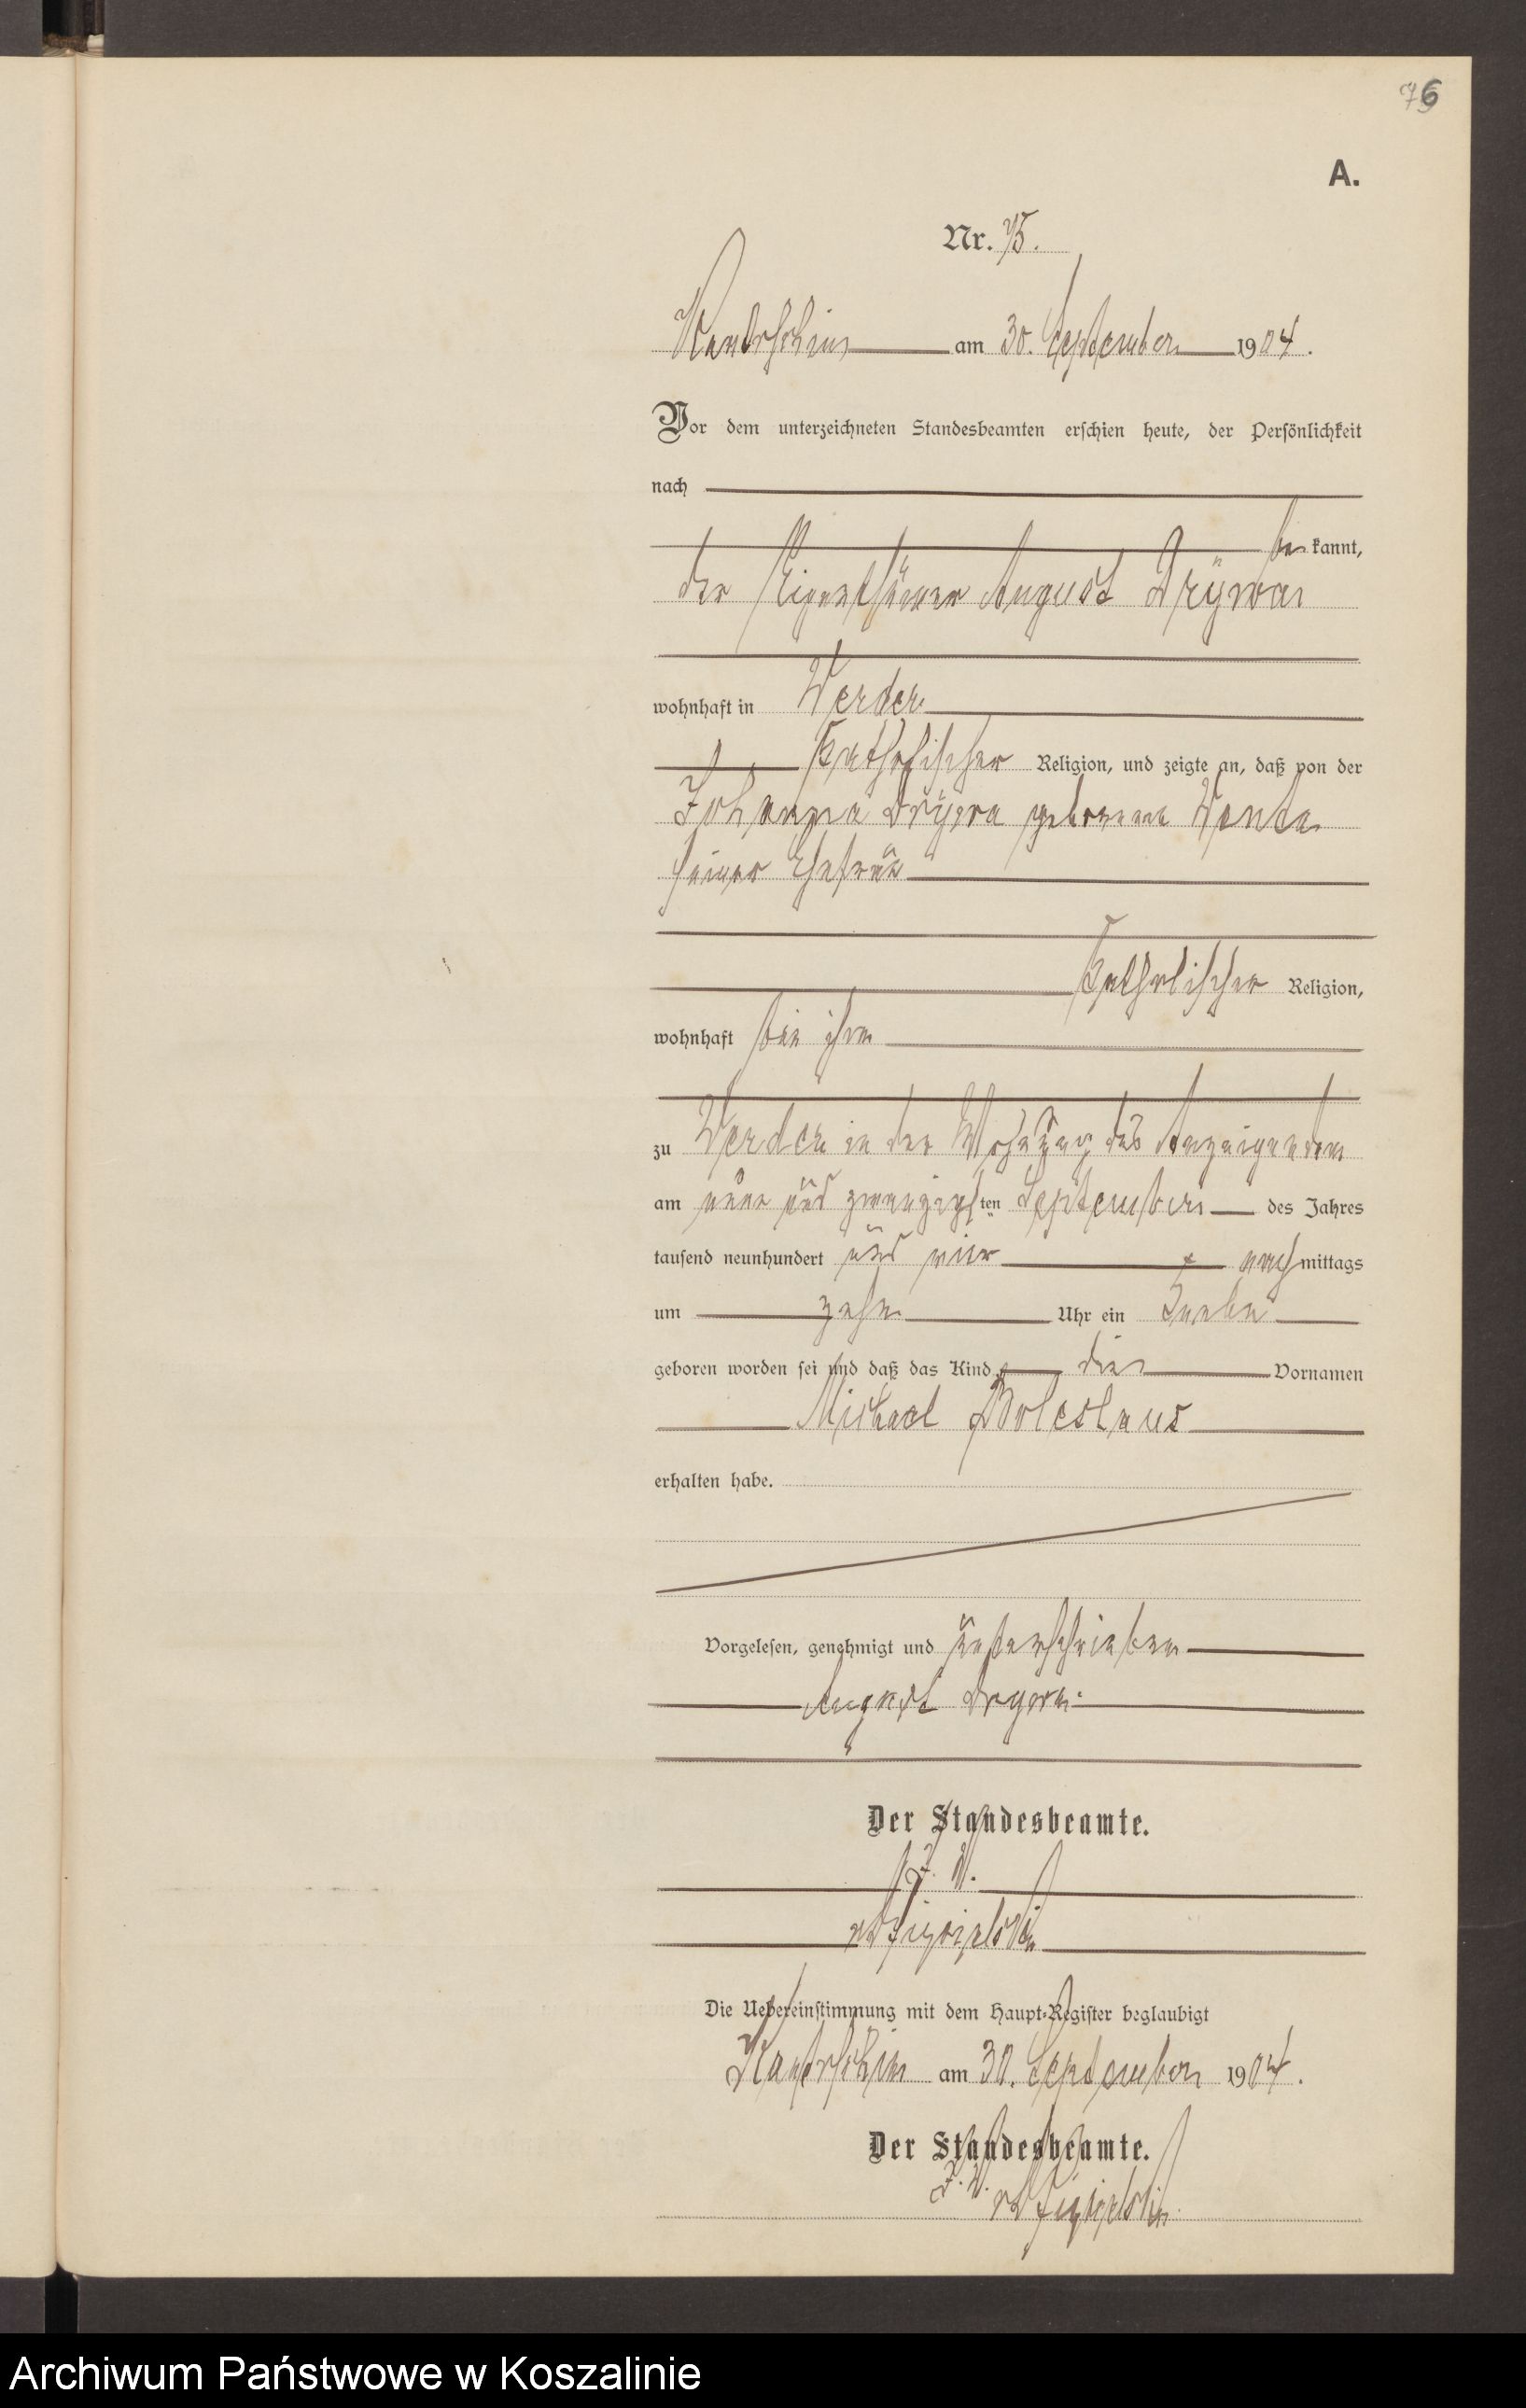 76
A.
Nr. 75.
am 30. September 1904.
Vor dem unterzeichneten Standesbeamten erschien heute, der Persönlichkeit
nach
be kannt,
der Eigenthümer August
wohnhaft in Werder
katholischer Religion, und zeigte an, daß von der
Johanna geborenen Wanta
seiner Ehefrau
katholischer Religion,
wohnhaft bei ihm
zu Werder in der Wohnung des Anzeigenden
am neun und zwanzigsten September des Jahres
tausend neunhundert und vier nachmittags
um zehn Uhr ein Knabe
geboren worden sei und daß das Kind die Vornamen
Michael Boleslaus
erhalten habe.
Vorgelesen, genehmigt und unterschrieben
August
Der Standesbeamte.
J. V.
Die Uebereinstimmung mit dem Haupt-Register beglaubigt
am 30. September 1904.
Der Standesbeamte.
J. V.
Archiwum Państwowe w Koszalinie